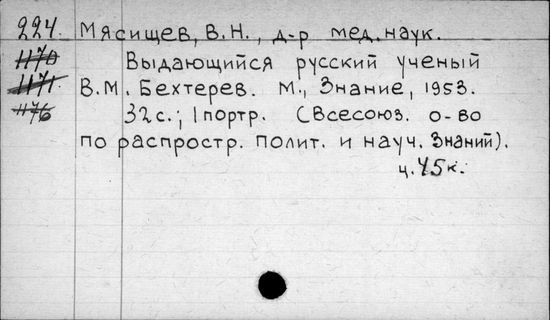 224. Мясищев, В.Н., д-р мед. наук.
1170 Выдающийся русский ученый
1171. В.М. Бехтерев. М., Знание, 1953.
1176 32 с.; 1 портр. (Всесоюз. о-во
по распростр. полит. и науч. знаний).
ц. 45 к.